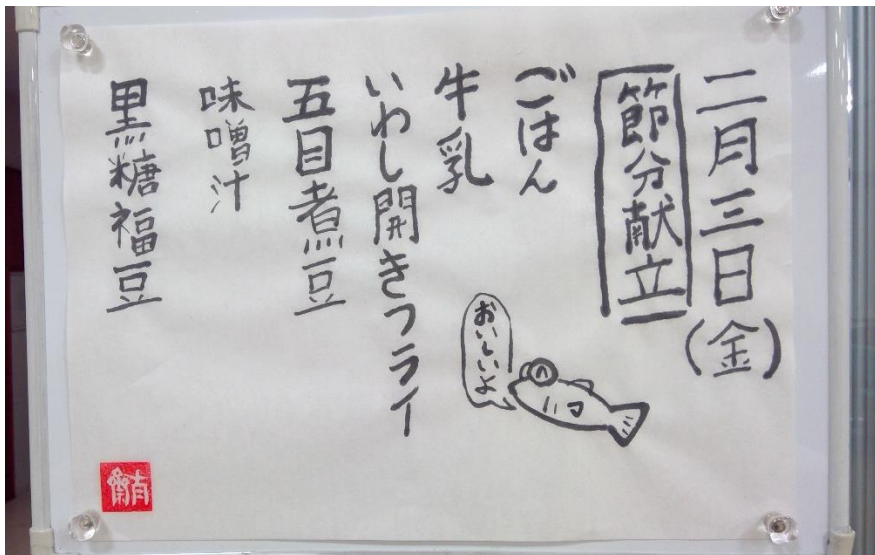 二月三日(金)
節分献立
ごはん
牛乳
いわし開きフライ
五目煮豆
味噌汁
黒糖福豆
おいしいよ